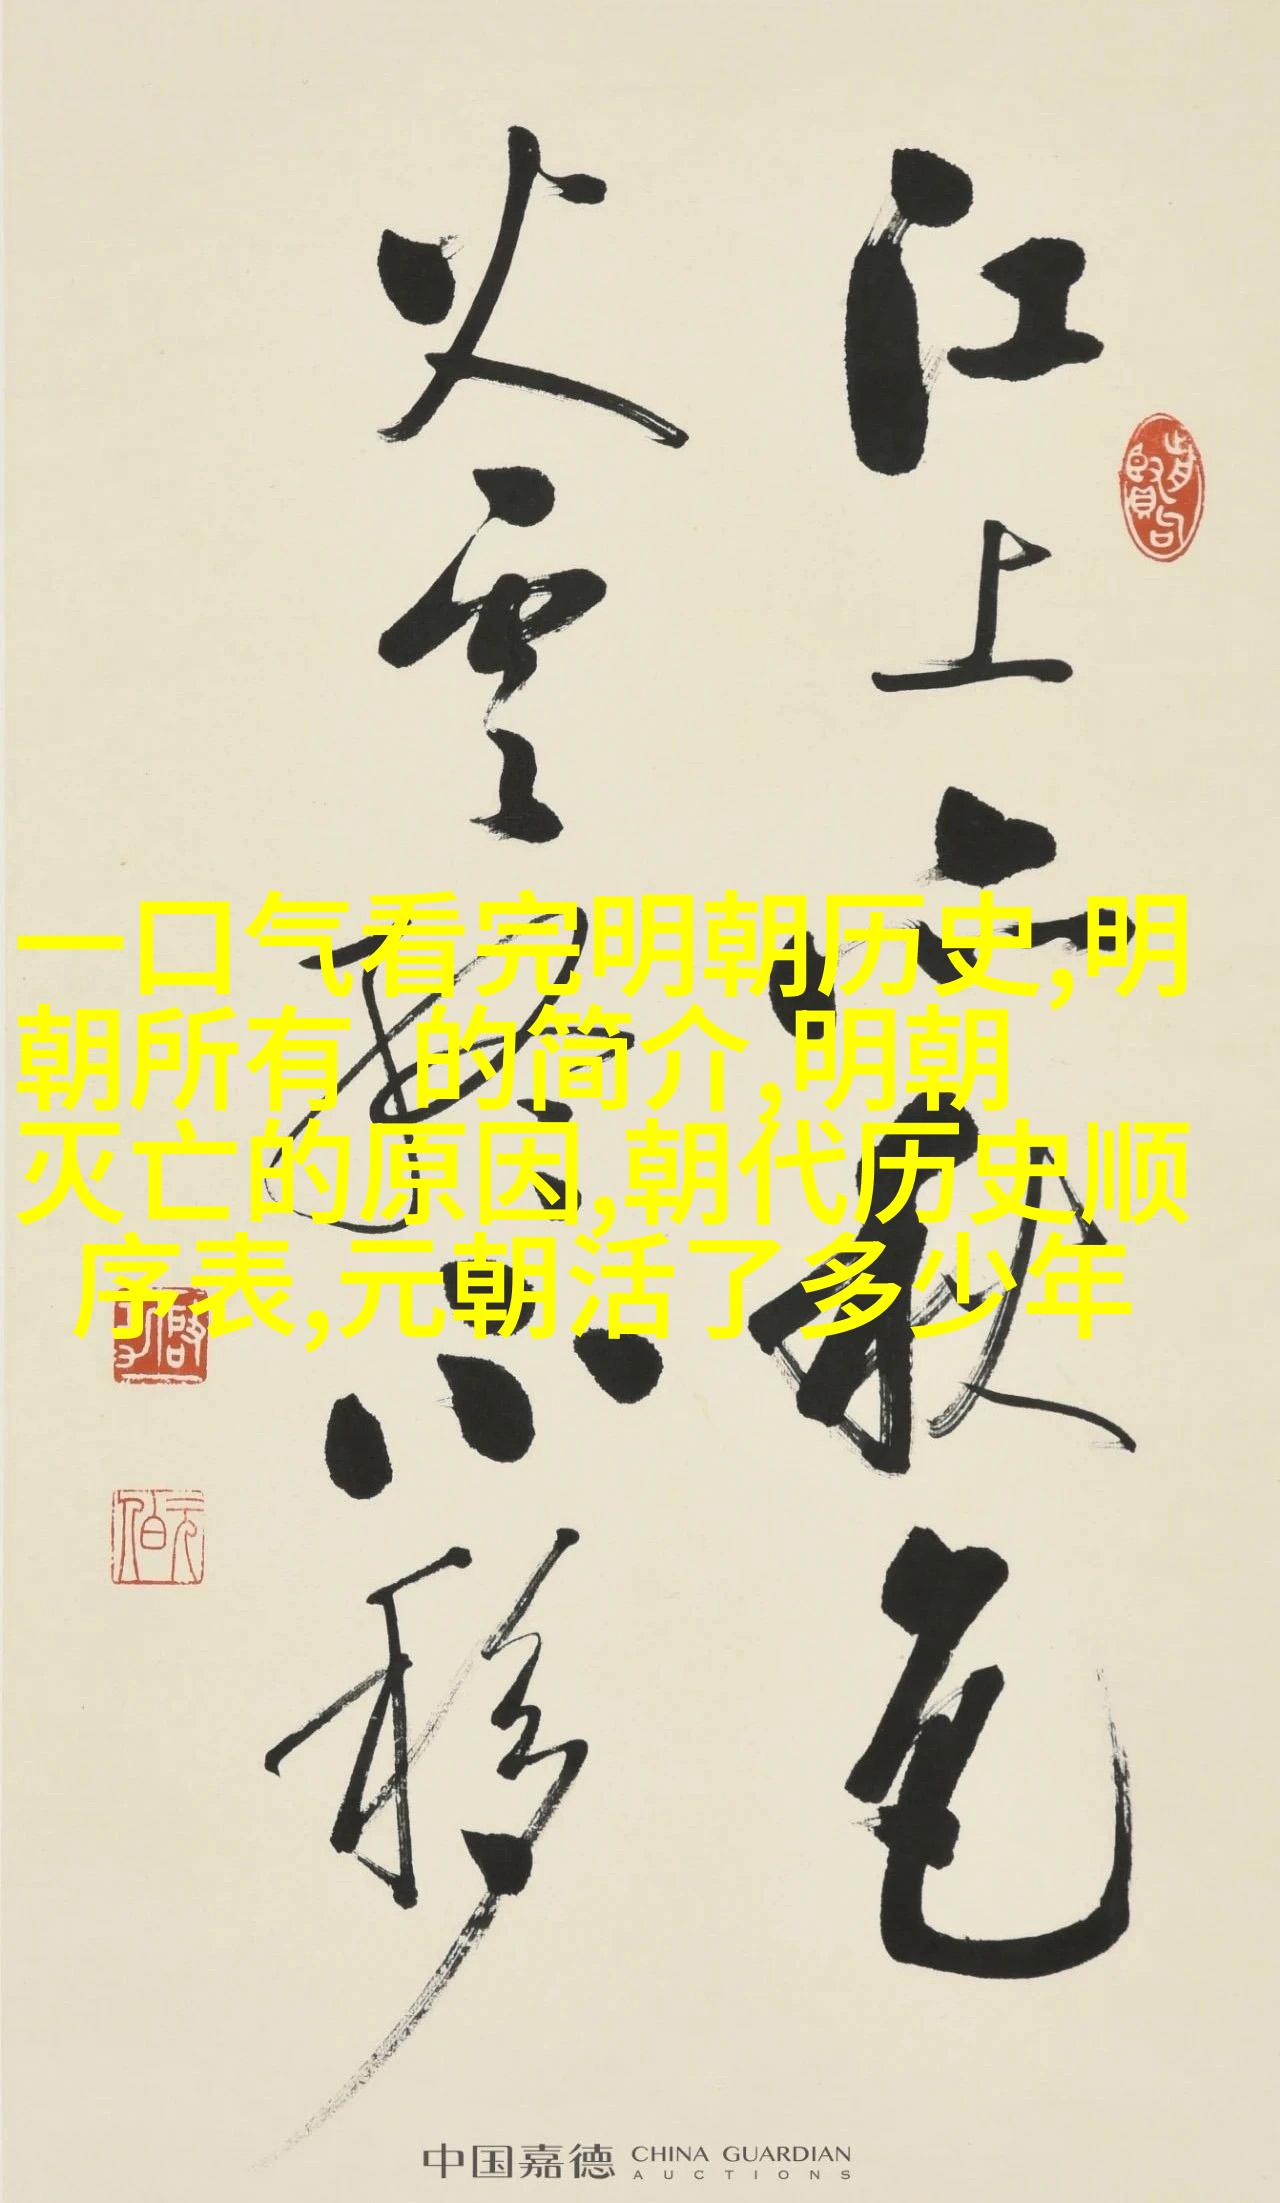 江上亦秋色
火雲終不移
一口气看完明朝历史,明
朝所有 的简介,明朝
灭亡的原因,朝代历史顺
序表,元朝活了多少年
啟功
元伯
中国嘉德 CHINA GUARDIAN
AUCTIONS